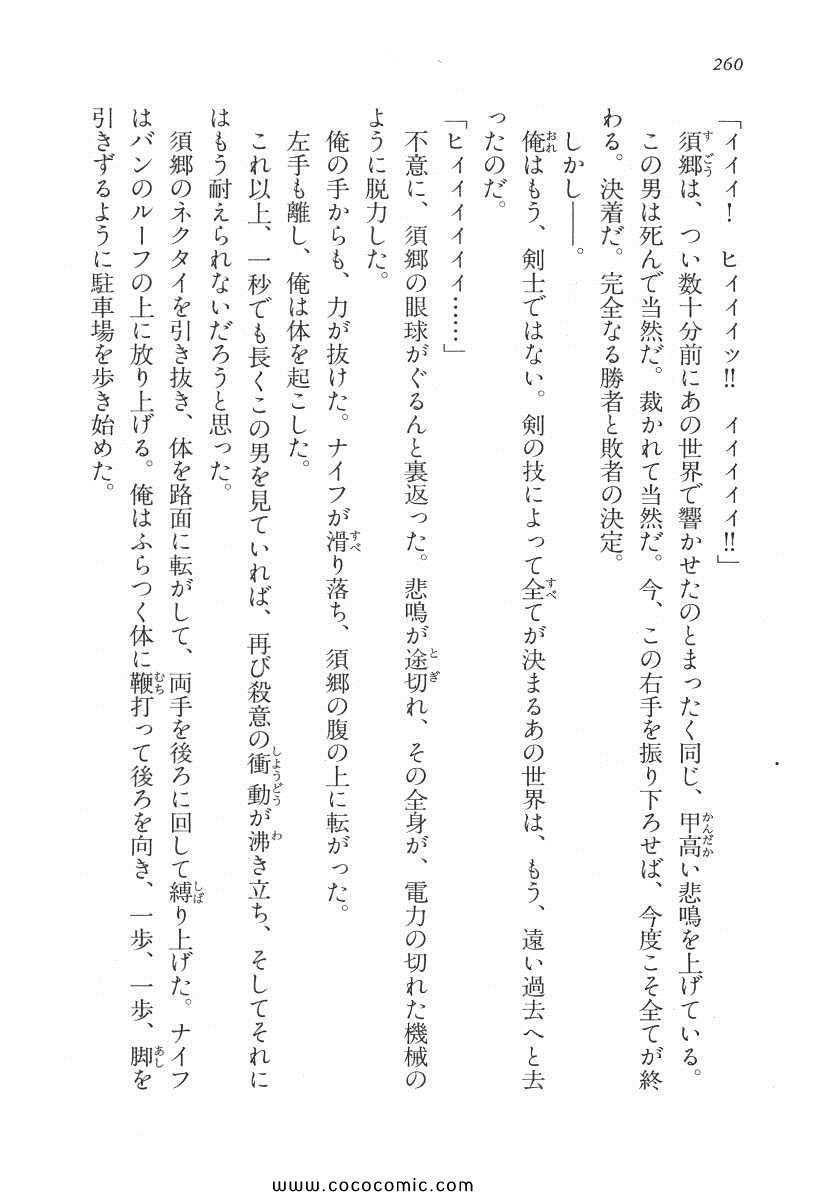 260
「イイイ！　ヒイイイッ!!　イイイイイ!!」
　須郷は、つい数十分前にあの世界で響かせたのとまったく同じ、甲高い悲鳴を上げている。
　この男は死んで当然だ。裁かれて当然だ。今、この右手を振り下ろせば、今度こそ全てが終
わる。決着だ。完全なる勝者と敗者の決定。
　しかし――。
　俺はもう、剣士ではない。剣の技によって全てが決まるあの世界は、もう、遠い過去へと去
ったのだ。
「ヒィィィィィィ……」
　不意に、須郷の眼球がぐるんと裏返った。悲鳴が途切れ、その全身が、電力の切れた機械の
ように脱力した。
　俺の手からも、力が抜けた。ナイフが滑り落ち、須郷の腹の上に転がった。
左手も離し、俺は体を起こした。
　これ以上、一秒でも長くこの男を見ていれば、再び殺意の衝動が沸き立ち、そしてそれに
はもう耐えられないだろうと思った。
　須郷のネクタイを引き抜き、体を路面に転がして、両手を後ろに回して縛り上げた。ナイフ
はバンのルーフの上に放り上げる。俺はふらつく体に鞭打って後ろを向き、一歩、一歩、脚を
引きずるように駐車場を歩き始めた。
www.cococomic.com